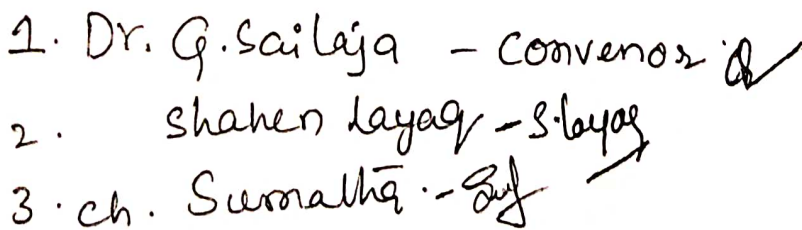 1. Dr. G. Sailaja - Convenor
2. Shahen Layaq - S. Layaq
3. Ch. Sumatha -